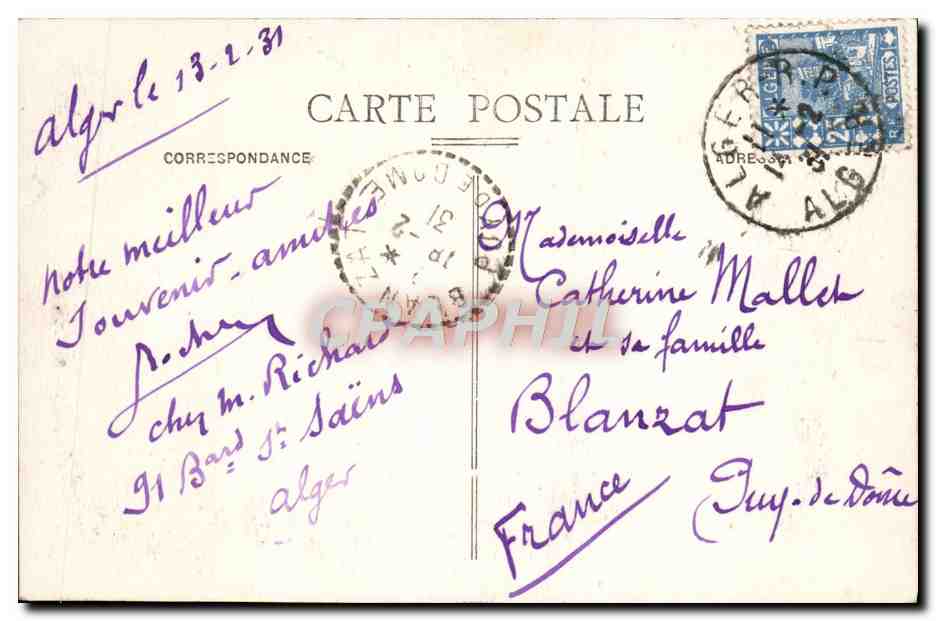 CARTE POSTALE
CORRESPONDANCE
ADRESSE
Alger le 13-2-31
notre meilleur
Souvenir - amitiés
chez M. Richard
91 Bard St Saëns
Alger
Mademoiselle
Catherine Mallet
et sa famille
Blanzat
Puy-de-Dôme
France
ALGER R.P.
ALG
ALGERIE
POSTES
25
BLANZAT
PUY DE DOME
18
2
31
CPAPHIL